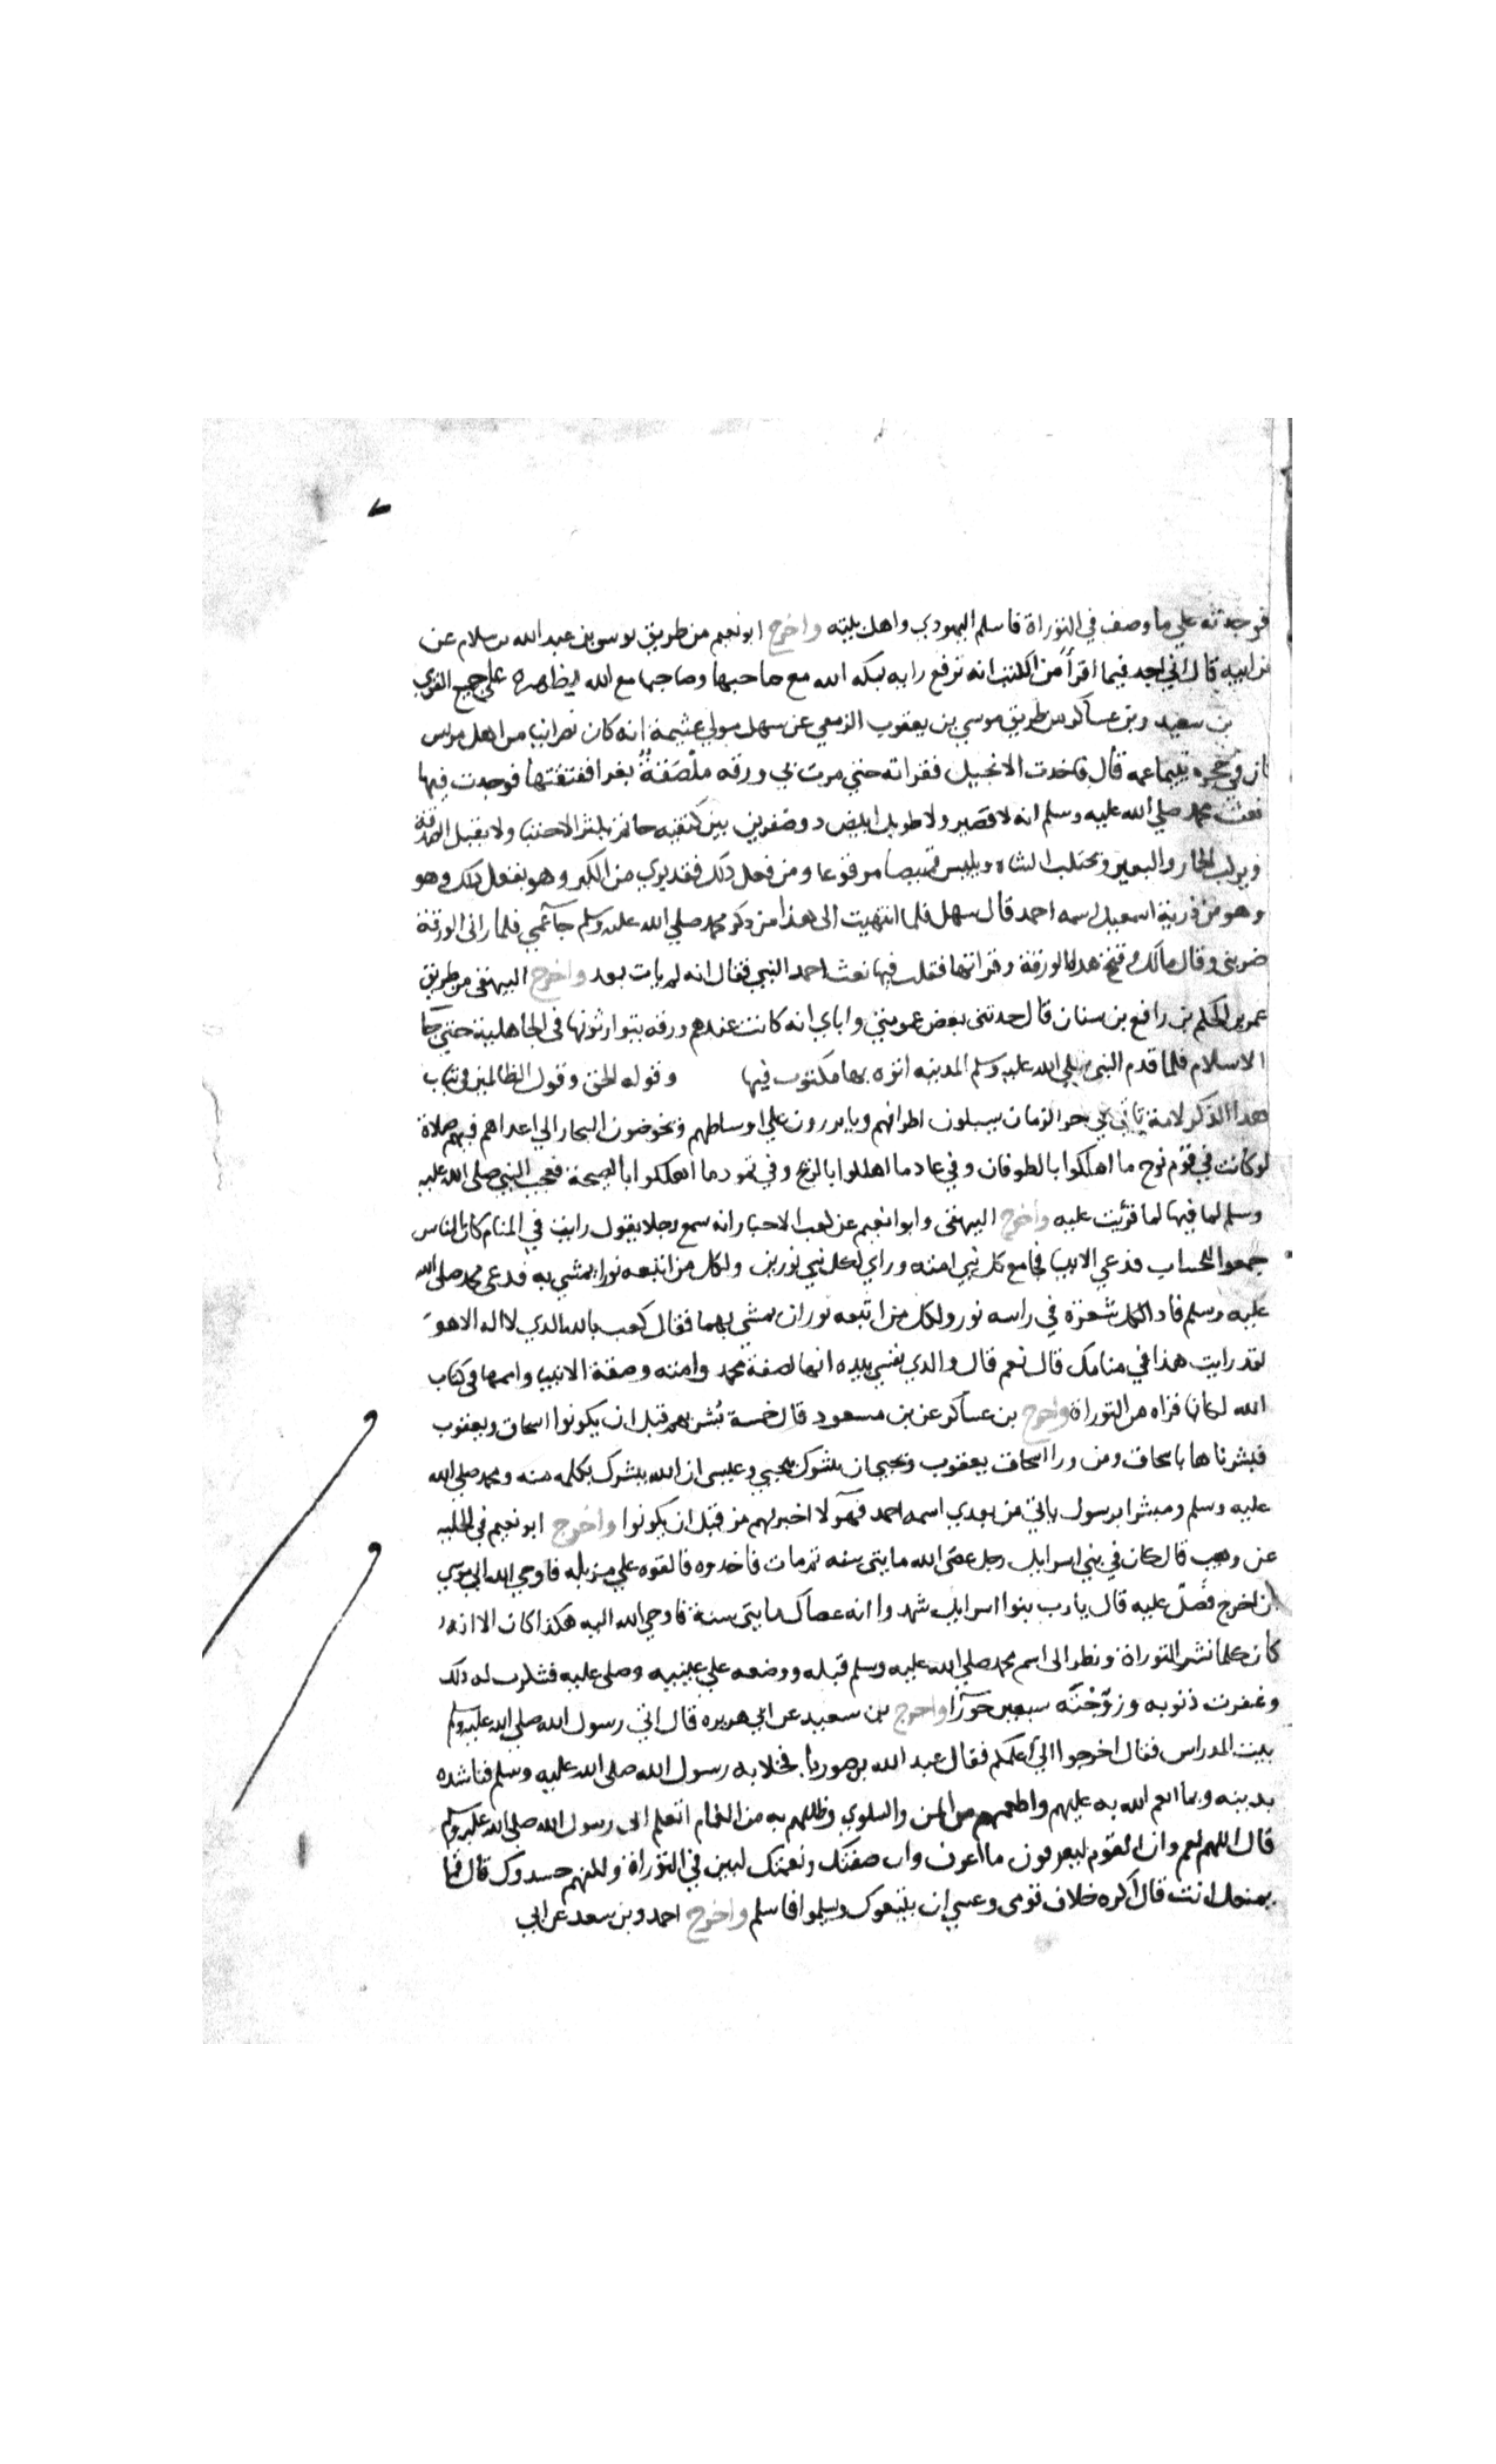 فوجدته علي ما وصف في التوراة فاسلم اليهودي واهل بيته واخرج ابو نعيم من طريق يوسف بن عبد الله بن سلام عن
ابيه قال اني اجد فيما اقرأ من الكتب انه ترفع راية بمكه الله مع صاحبها وصاحبها مع الله يظهره علي جميع القري
بن سعيد وبن عساكر من طريق موسي بن يعقوب الزمعي عن سهل مولي عثيمة انه كان نصرانيا من اهل مريس
كان في حجره يتيما عمه قال فاخدت الانجيل فقراته حتي مرت بي ورقه ملصقة بغرا ففتقتها فوجدت فيها
نعت محمد صلي الله عليه وسلم انه لا قصير ولا طويل ابيض دو ضفرين بين كتفيه خاتم يكثر الاحتبا ولا يقبل الصدقة
ويركب الحمار والبعير ويحتلب الشاه ويلبس قميصا مرقوعا ومن فعل ذلك فقد بري من الكبر وهو يفعل ذلك وهو
وهو من ذرية اسمعيل اسمه احمد قال سهل فلما انتهيت الى هذا من ذكر محمد صلي الله عليه وسلم جآ عمي فلما راى الورقة
ضربني وقال مالك وفتح هده الورقة وقراتها فقلت فيها نعت احمد النبي فقال انه لم يات بعد واخرج البيهقي من طريق
عمر بن الحكم بن رافع بن سنان قال حدثنى بعض عمومتي واباي انه كانت عندهم ورقه يتوارثونها في الجاهلية حتي جآ
الاسلام فلما قدم النبي صلي الله عليه وسلم المدينه اتوه بها مكتوب فيها وقوله الحق وقول الظالمين في تباب
هذا الذكر لامة تاتي في اخر الزمان يسبلون اطرافهم وياتزرون علي اوساطهم ويخوضون البحار الي اعداهم فيهم صلاة
لو كانت في قوم نوح ما اهلكوا بالطوفان وفي عاد ما اهلكوا بالريح وفي ثمود ما اهلكوا بالصيحة فعجب النبي صلى الله عليه
وسلم لما فيها لما قرئت عليه واخرج البيهقي وابو نعيم عن كعب الاحبار انه سمع رجلا يقول رايت في المنام كان الناس
جمعوا للحساب فدعي الانبيا فجا مع كل نبي امته وراي لكل نبي نورين ولكل من اتبعه نورا يمشي به فدعى محمد صلى الله
عليه وسلم فاذا لكل شعرة في راسه نور ولكل من اتبعه نوران يمشي بهما فقال كعب بالله الدي لا اله الا هو
لقد رايت هذا في منامك قال نعم قال والدي نفسي بيده انها لصفة محمد وامته وصفة الانبيا واممها في كتاب
الله لكانما قراه من التوراة واخرج بن عساكر عن بن مسعود قال خمسة بُشر بهم قبل ان يكونوا اسحاق ويعقوب
فبشرناها باسحاق ومن ورا اسحاق يعقوب ويحيي ان الله يبشرك بيحيي وعيسى ان الله يبشرك بكلمه منه ومحمد صلي الله
عليه وسلم ومبشرا برسول ياتي من بعدي اسمه احمد فهولا اخبر بهم من قبل ان يكونوا واخرج ابو نعيم في الحليه
عن وهب قال كان في بني اسرايل رجل عصى الله مايتى سنه ثم مات فاخدوه فالقوه علي مزبله فاوحي الله الي موسي
ان اخرج فصلّ عليه قال يا رب بنوا اسرايل شهدوا انه عصاك مايتى سنة فاوحي الله اليه هكذا كان الا انه
كان كلما نشر التوراة ونظر الى اسم محمد صلي الله عليه وسلم قبله ووضعه علي عينيه وصلى عليه فشكرت له ذلك
وغفرت ذنوبه وزوّجته سبعين حورآ واخرج بن سعيد عن ابي هريره قال اتي رسول الله صلي الله عليه وسلم
بيت المدراس فقال اخرجوا الي اعلمكم فقال عبد الله بن صوريا فخلا به رسول الله صلى الله عليه وسلم فناشده
بدينه وبما انعم الله به عليهم واطعمهم من المن والسلوي وظللهم به من الغمام اتعلم اني رسول الله صلى الله عليه وسلم
قال اللهم نعم وان القوم ليعرفون ما اعرف وان صفتك ونعتك لبين في التوراة ولكنهم حسدوك قال فما
يمنعك انت قال اكره خلاف قومى وعسي ان يتبعوك ويسلموا فاسلم واخرج احمد وبن سعد عن ابي